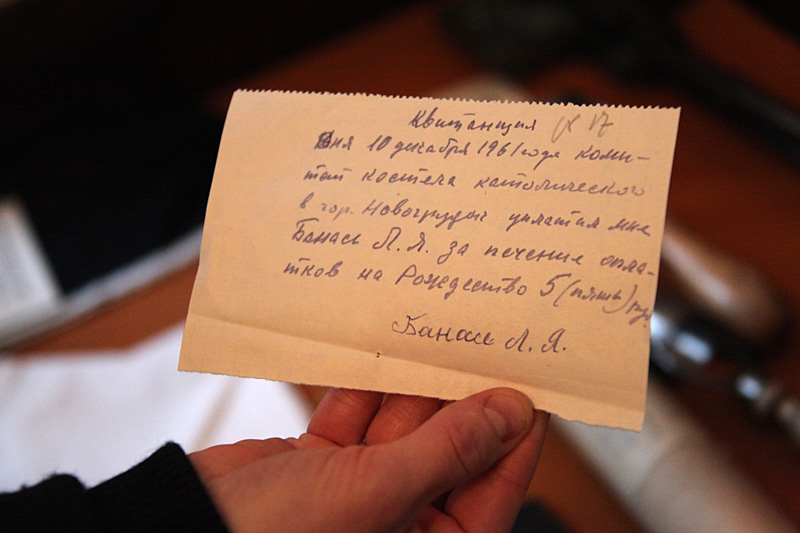 Квитанция № 17
Дня 10 декабря 1961 года коми-
тет костела католического
в гор. Новогрудке уплатил мне
Банась Л. Я. за печение опла-
тков на Рождество 5 (пять) руб.
Банась Л. Я.